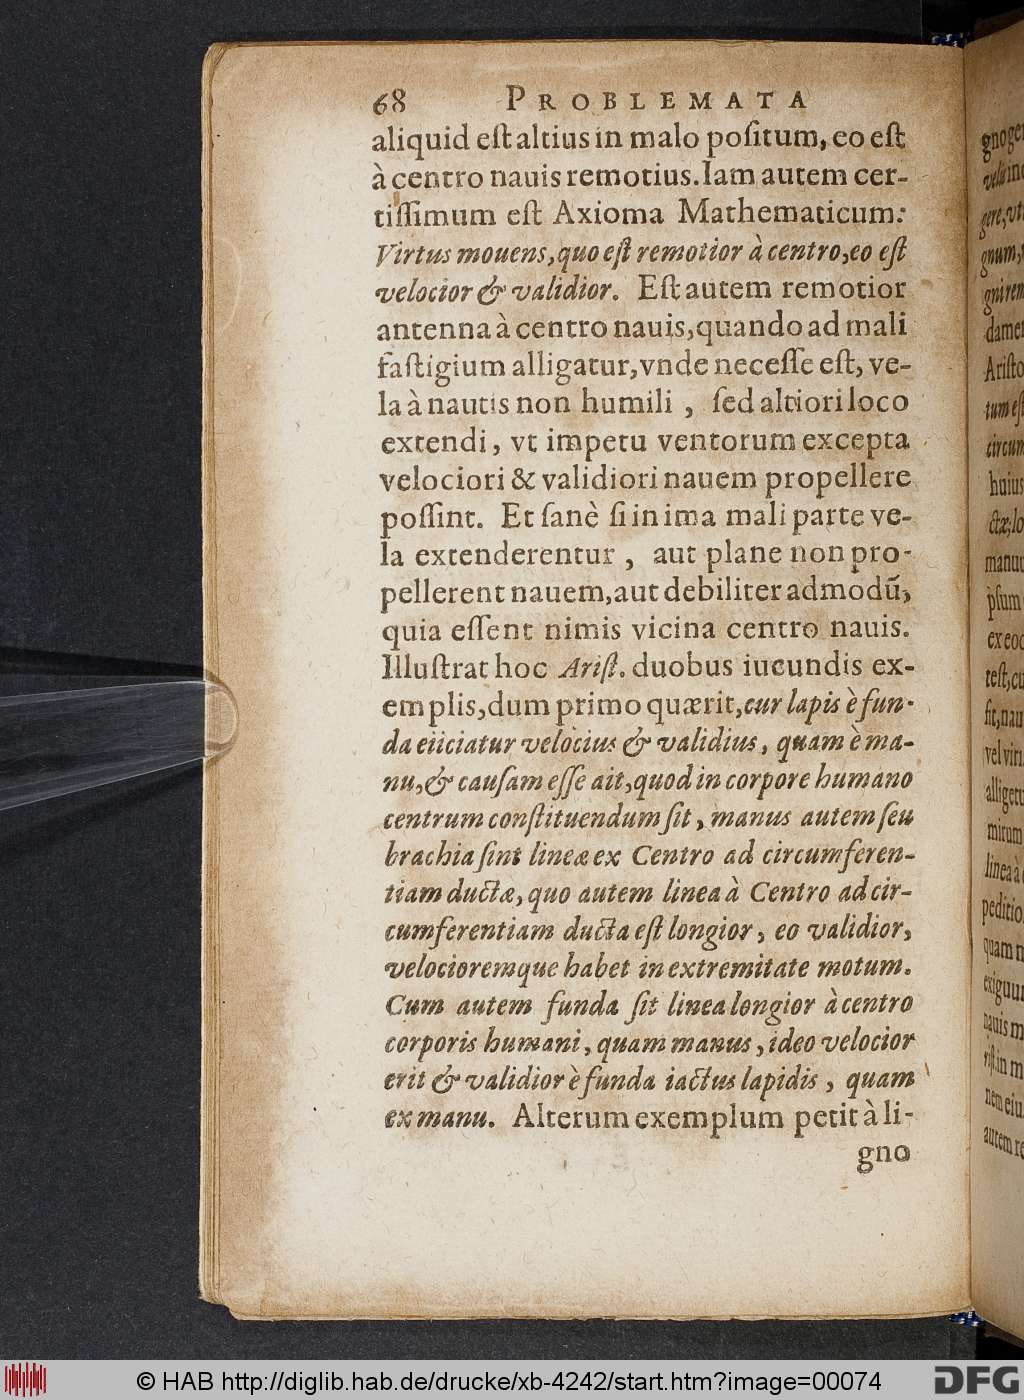 68 PROBLEMATA
aliquid eſt altius in malo poſitum, eo eſt
à centro nauis remotius. Iam autem cer-
tiſſimum eſt Axioma Mathematicum:
Virtus mouens, quo eſt remotior à centro, eo eſt
velocior & validior. Eſt autem remotior
antenna à centro nauis, quando ad mali
faſtigium alligatur, vnde neceſſe eſt, ve-
la à nautis non humili , ſed altiori loco
extendi, vt impetu ventorum excepta
velociori & validiori nauem propellere
poſſint. Et ſanè ſi in ima mali parte ve-
la extenderentur , aut plane non pro-
pellerent nauem, aut debiliter admodũ,
quia eſſent nimis vicina centro nauis.
Illuſtrat hoc Ariſt. duobus iucundis ex-
emplis, dum primo quærit, cur lapis è fun-
da eiiciatur velòcius & validius, quam è ma-
nu, & cauſam eſſe ait, quod in corpore humano
centrum conſtituendum ſit, manus autem ſeu
brachia ſint lineæ ex Centro ad circumferen-
tiam ductæ, quo autem linea à Centro ad cir-
cumferentiam ducta eſt longior, eo validior,
velocioremque habet in extremitate motum.
Cum autem funda ſit linea longior à centro
corporis humani, quam manus, ideo velocior
erit & validior è funda iactus lapidis, quam
ex manu. Alterum exemplum petit à li-
gno
velis
gere, vt
gnum,
gnirem
dame
Ariſto
tum eſt
circum
huius
ctæ, lo
manu
ipſum
ex eoc
teſt, cu
fit, nau
vel viri
alligetu
mirum
linea à
peditio
quam m
exiguum
nauis m
riſt. in m
nem eiu
autem re
© HAB http://diglib.hab.de/drucke/xb-4242/start.htm?image=00074
DFG